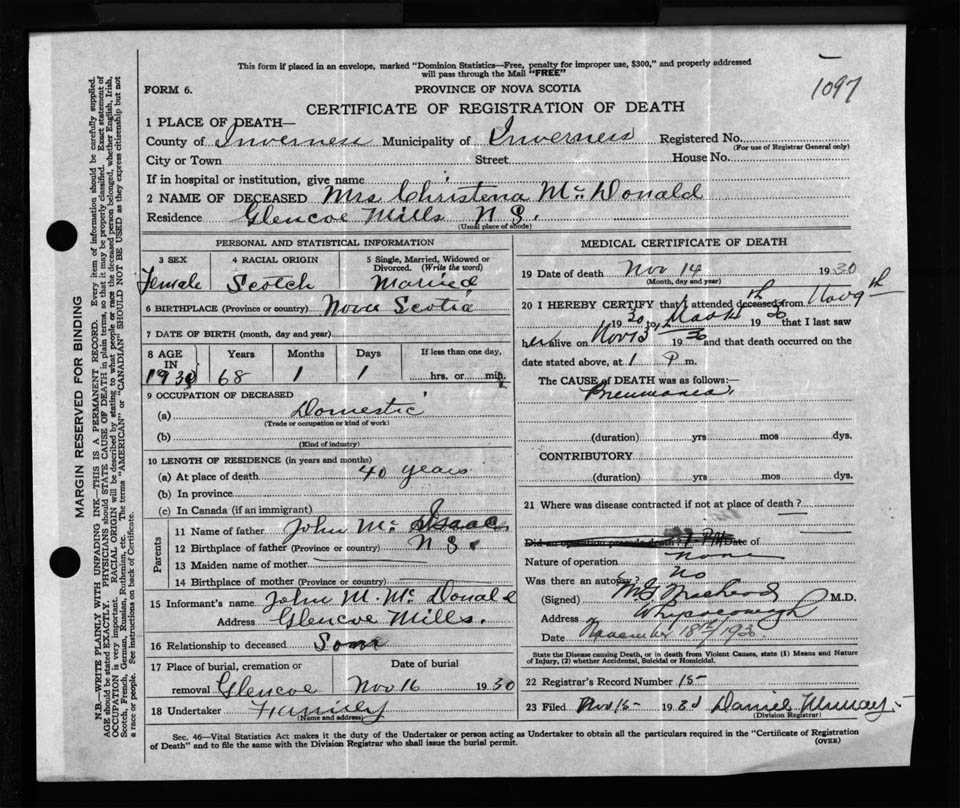 This form if placed in an envelope, marked "Dominion Statistics—Free, penalty for improper use, $300," and properly addressed
will pass through the Mail "FREE"
1097
FORM 6.
PROVINCE OF NOVA SCOTIA
CERTIFICATE OF REGISTRATION OF DEATH
1 PLACE OF DEATH—
County of Inverness Municipality of Inverness Registered No.
(For use of Registrar General only)
City or Town Street House No.
If in hospital or institution, give name
2 NAME OF DECEASED Mrs Christena Mc Donald
Residence Glencoe Mills N S.
(Usual place of abode)
PERSONAL AND STATISTICAL INFORMATION
3 SEX 4 RACIAL ORIGIN 5 Single, Married, Widowed or
Divorced. (Write the word)
Female Scotch Married
6 BIRTHPLACE (Province or country) Nova Scotia
7 DATE OF BIRTH (month, day and year)
8 AGE IN Years Months Days If less than one day,
1930 68 1 1 hrs. or min.
9 OCCUPATION OF DECEASED
(a) Domestic
(Trade or occupation or kind of work)
(b)
(Kind of industry)
10 LENGTH OF RESIDENCE (in years and months)
(a) At place of death 40 years
(b) In province
(c) In Canada (if an immigrant)
Parents
11 Name of father John Mc Isaac
12 Birthplace of father (Province or country) N S.
13 Maiden name of mother
14 Birthplace of mother (Province or country)
15 Informant's name John M. Mc Donald
Address Glencoe Mills.
16 Relationship to deceased Son
17 Place of burial, cremation or Date of burial
removal Glencoe Nov 16 1930
18 Undertaker Family
(Name and address)
MEDICAL CERTIFICATE OF DEATH
19 Date of death Nov 14 1930
(Month, day and year)
20 I HEREBY CERTIFY that I attended deceased from Nov 9th
1930 to 1930 that I last saw
her alive on Nov 13th 1930 and that death occurred on the
date stated above, at 1 P m.
The CAUSE of DEATH was as follows:—
Pneumonia
(duration) yrs mos dys.
CONTRIBUTORY
(duration) yrs mos dys.
21 Where was disease contracted if not at place of death?
Did an operation precede death? Date of
Nature of operation none
Was there an autopsy? no
(Signed) M.D.
Address Whycocomagh
Date November 18th/1930
State the Disease causing Death, or in death from Violent Causes, state (1) Means and Nature
of Injury, (2) whether Accidental, Suicidal or Homicidal.
22 Registrar's Record Number 15
23 Filed Nov 15 1930 Daniel Murray
(Division Registrar)
Sec. 46—Vital Statistics Act makes it the duty of the Undertaker or person acting as Undertaker to obtain all the particulars required in the "Certificate of Registration
of Death" and to file the same with the Division Registrar who shall issue the burial permit.
(OVER)
MARGIN RESERVED FOR BINDING
N.B.—WRITE PLAINLY WITH UNFADING INK—THIS IS A PERMANENT RECORD. Every item of information should be carefully supplied.
AGE should be stated EXACTLY. PHYSICIANS should STATE CAUSE OF DEATH in plain terms, so that it may be properly classified. Exact statement of
OCCUPATION is very important. RACIAL ORIGIN will be described by stating to what people or race the deceased person belonged, whether English, Irish,
Scotch, French, German, Russian, Ruthenian, etc. The terms "AMERICAN" or "CANADIAN" SHOULD NOT BE USED as they express citizenship but not
a race or people. See instructions on back of Certificate.